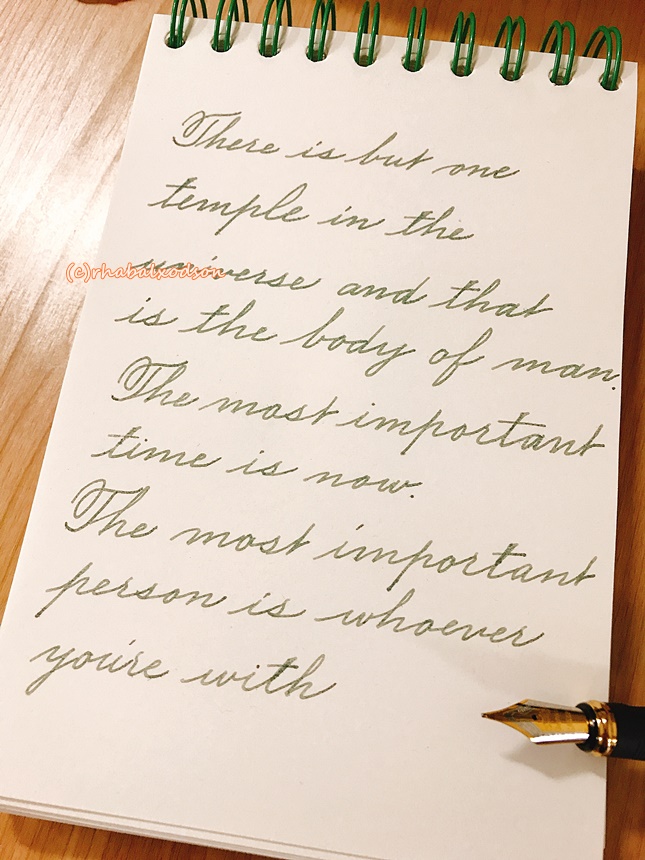 There is but one
temple in the
(c)rhabdixodson
universe and that
is the body of man.
The most important
time is now.
The most important
person is whoever
you're with